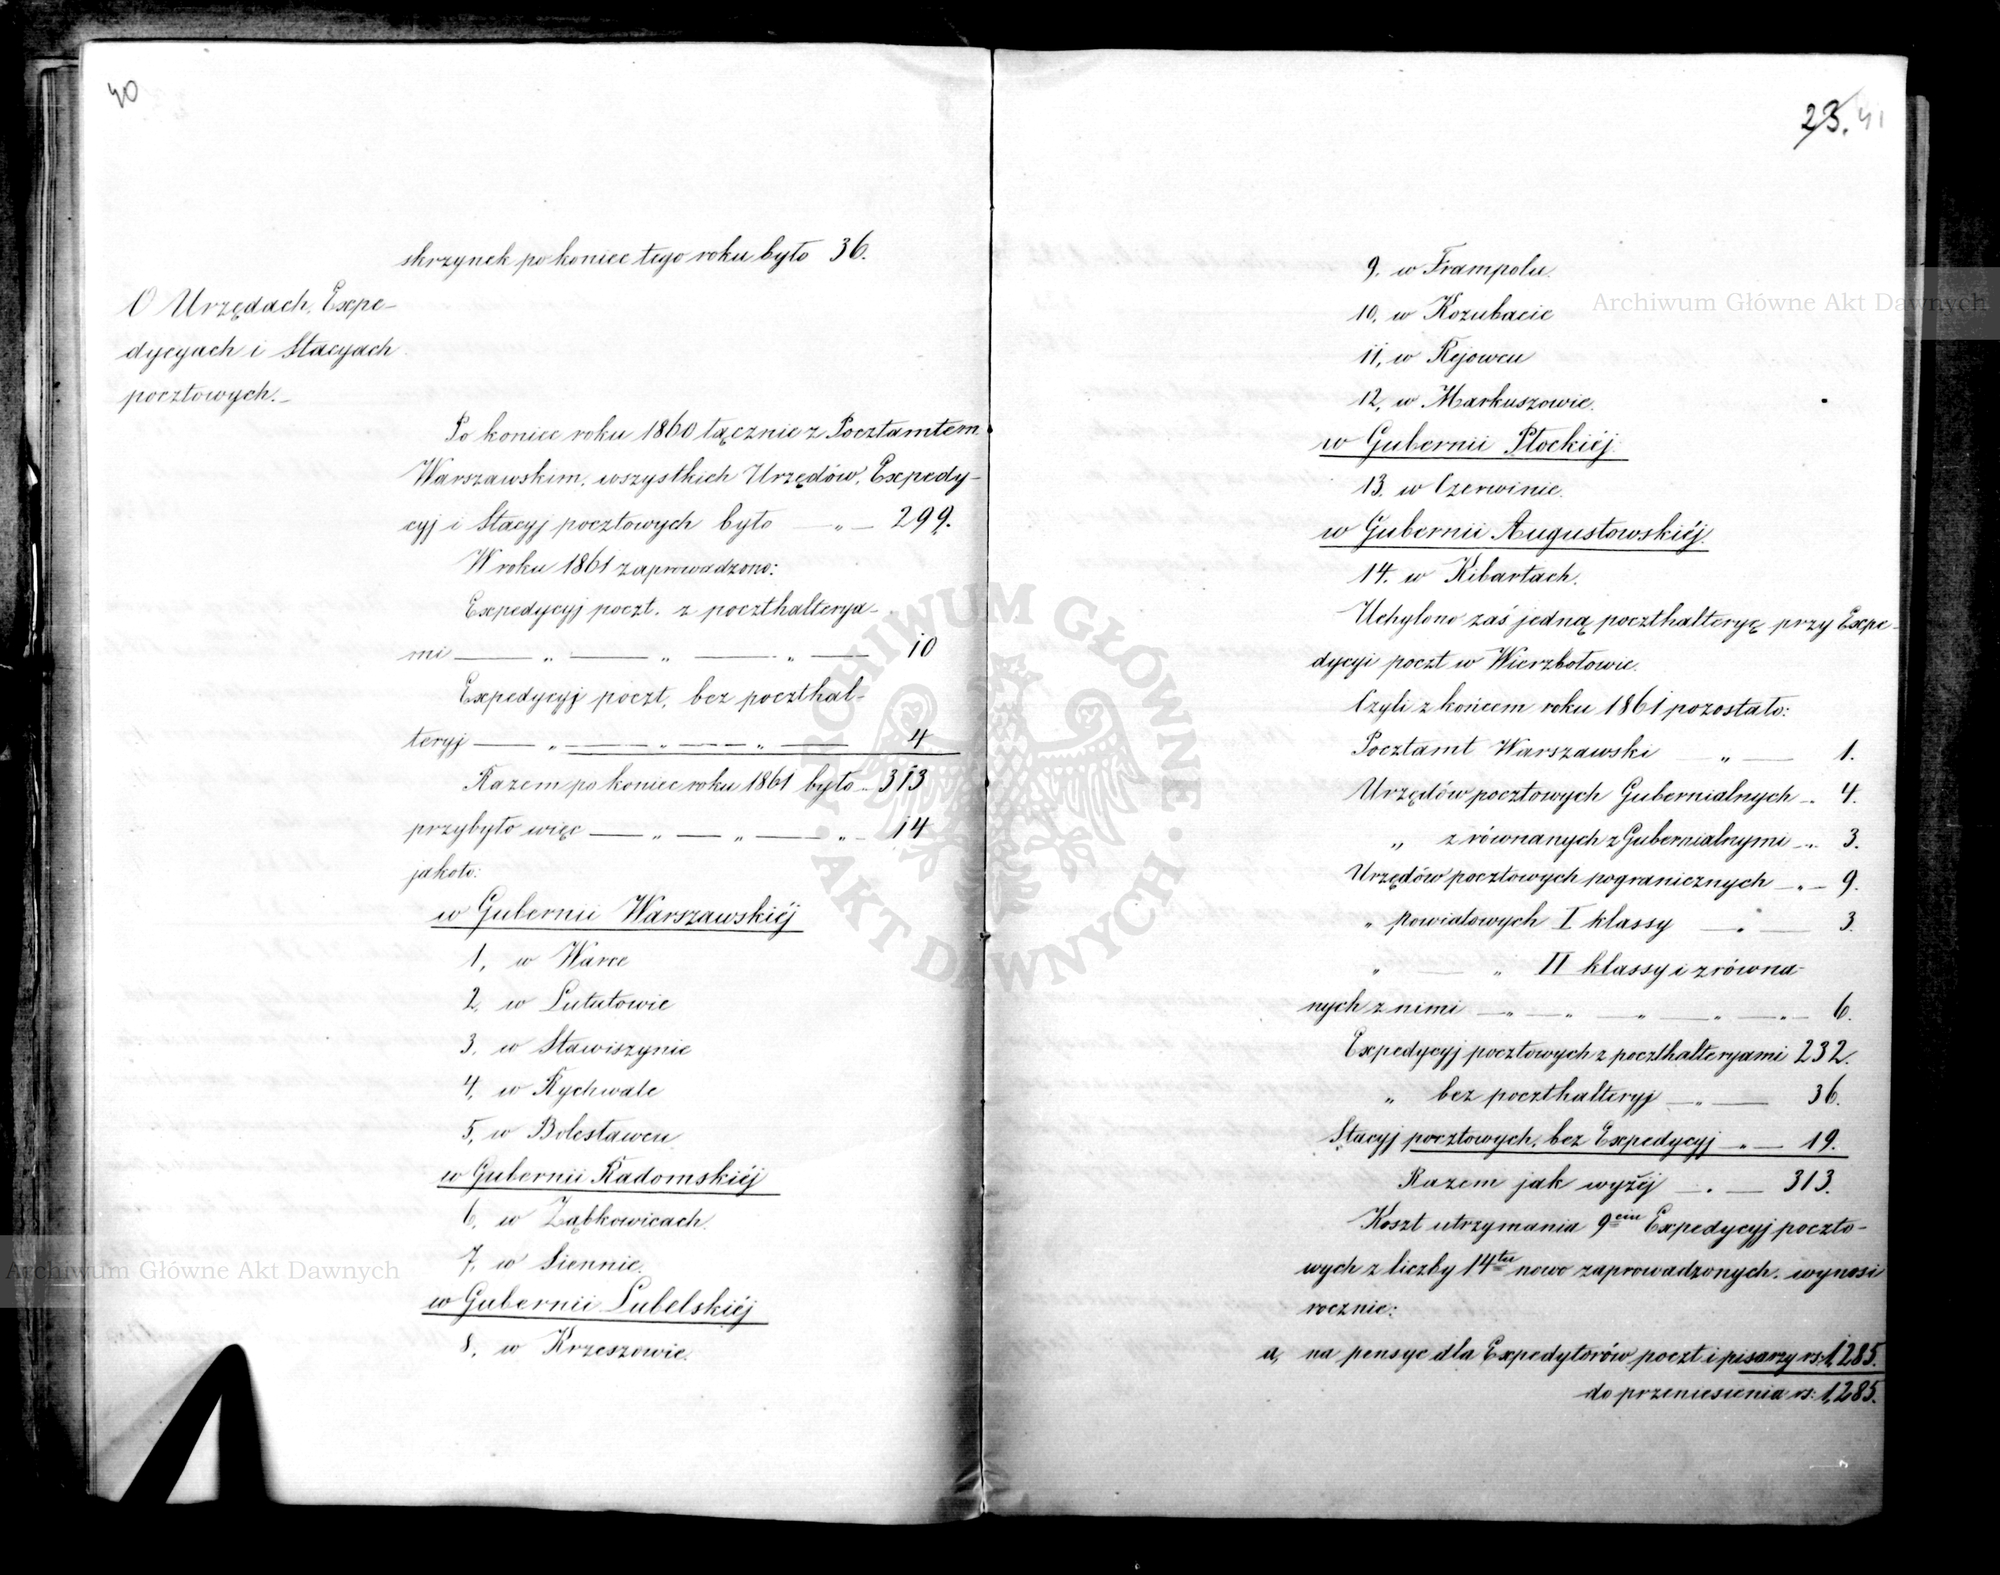 40
skrzynek po koniec tego roku było 36.
O Urzędach, Expe-
dycyach i Stacyach
pocztowych._
Po koniec roku 1860 łącznie z Pocztamtem
Warszawskim, wszystkich Urzędów, Expedy-
cyj i Stacyj pocztowych było — „ — 299.
W roku 1861 zaprowadzono:
Expedycyj poczt. z poczthalterya-
mi — „ — „ — „ — 10
Expedycyj poczt, bez poczthal-
teryj — „ — „ — „ — 4
Razem po koniec roku 1861 było „ 313
przybyło więc — „ — „ — „ — 14
jakoto:
w Gubernii Warszawskiéj
1, w Warce
2, w Lututowie
3, w Stawiszynie
4, w Rychwale
5, w Bolesławcu
w Gubernii Radomskiéj
6, w Ząbkowicach.
7, w Siennie.
w Gubernii Lubelskiéj
8, w Krzeszowie.
23. 41
9, w Frampolu.
10, w Kozubacie
11, w Rejowcu
12, w Markuszowie.
w Gubernii Płockiéj.
13, w Czerwinie.
w Gubernii Augustowskiéj.
14, w Kibartach.
Uchylono zaś jedną poczthalteryę przy Expe-
dycyi poczt w Wierzbołowie.
Czyli z końcem roku 1861 pozostało:
Pocztamt Warszawski — „ — 1.
Urzędów pocztowych Gubernialnych „ 4.
„ zrównanych z Gubernialnymi „ 3.
Urzędów pocztowych pogranicznych — „ — 9.
„ powiatowych I klassy — „ — 3.
„ — „ II klassy i zrówna-
nych z nimi — „ — „ — „ — „ — „ — 6.
Expedycyj pocztowych z poczthalteryami 232.
„ bez poczthalteryj — „ — 36.
Stacyj pocztowych, bez Expedycyj — „ — 19.
Razem jak wyżéj — „ — 313.
Koszt utrzymania 9ciu Expedycyj poczto-
wych z liczby 14tu nowo zaprowadzonych, wynosi
rocznie:
a, na pensye dla Expedytorów poczt i pisarzy rs: 1,285.
do przeniesienia rs: 1,285.
Archiwum Główne Akt Dawnych
Archiwum Główne Akt Dawnych
ARCHIWUM GŁÓWNE · AKT DAWNYCH ·